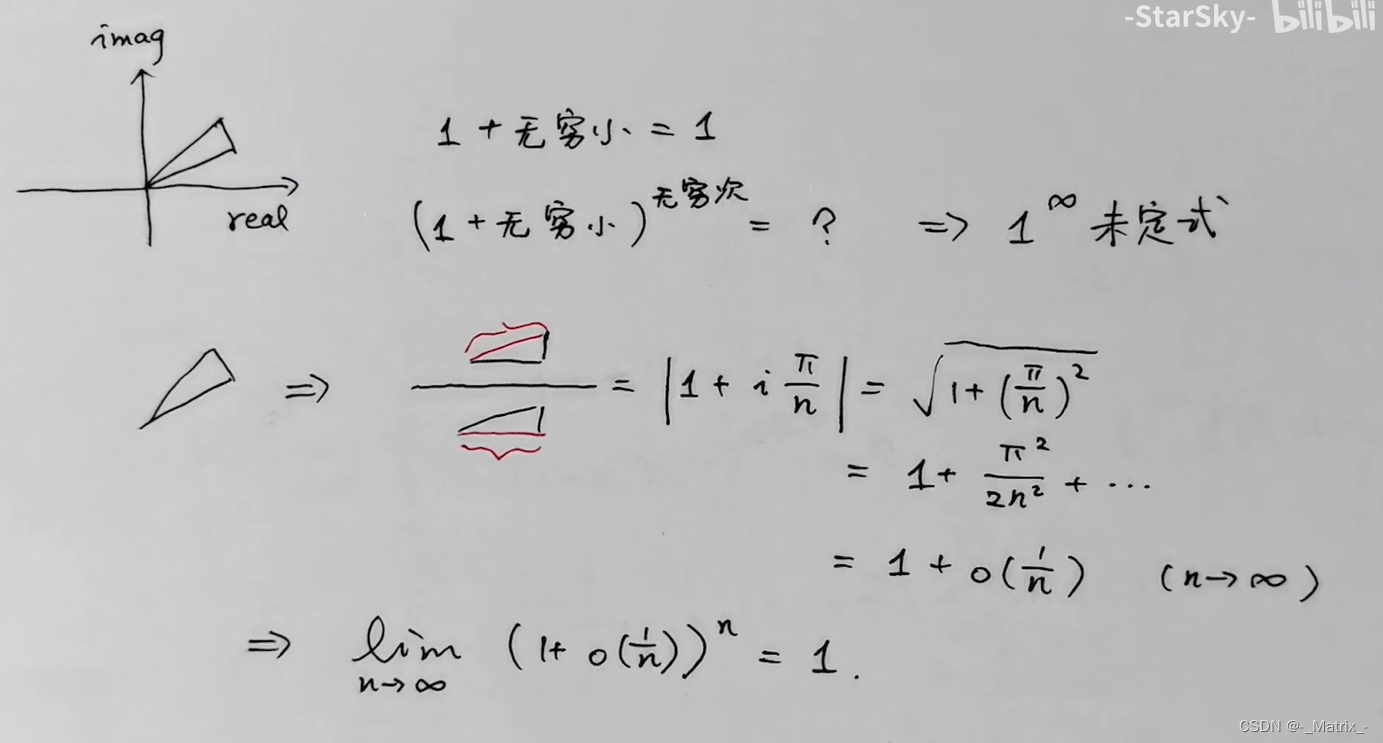 -StarSky- bilibili
imag
real
1 + 无穷小 = 1
(1 + 无穷小)^无穷次 = ? => 1^∞ 未定式
=> = |1 + i π/n| = √(1+(π/n)^2)
= 1 + π^2/2n^2 + ...
= 1 + o(1/n) (n→∞)
=> lim n→∞ (1+ o(1/n))^n = 1.
CSDN @-_Matrix_-